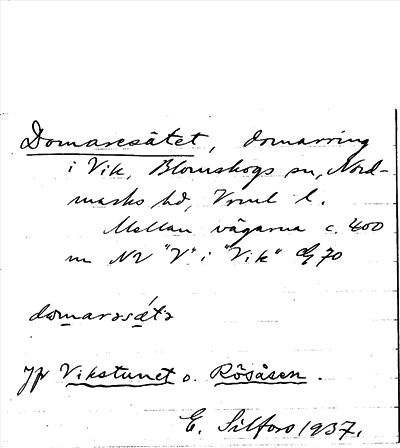 Domaresätet, domarring
i Vik, Blomskogs sn, Nord-
marks hd, Vrml l.
Mellan vägarna c. 400
m NV "V" i "Vik" Eg 70
domarəsǽtə
Jfr Vikstunet o. Rösåsen.
E. Silfors 1937.